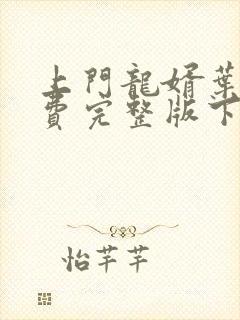 上門龍婿葉
費完整版下
怡芊芊